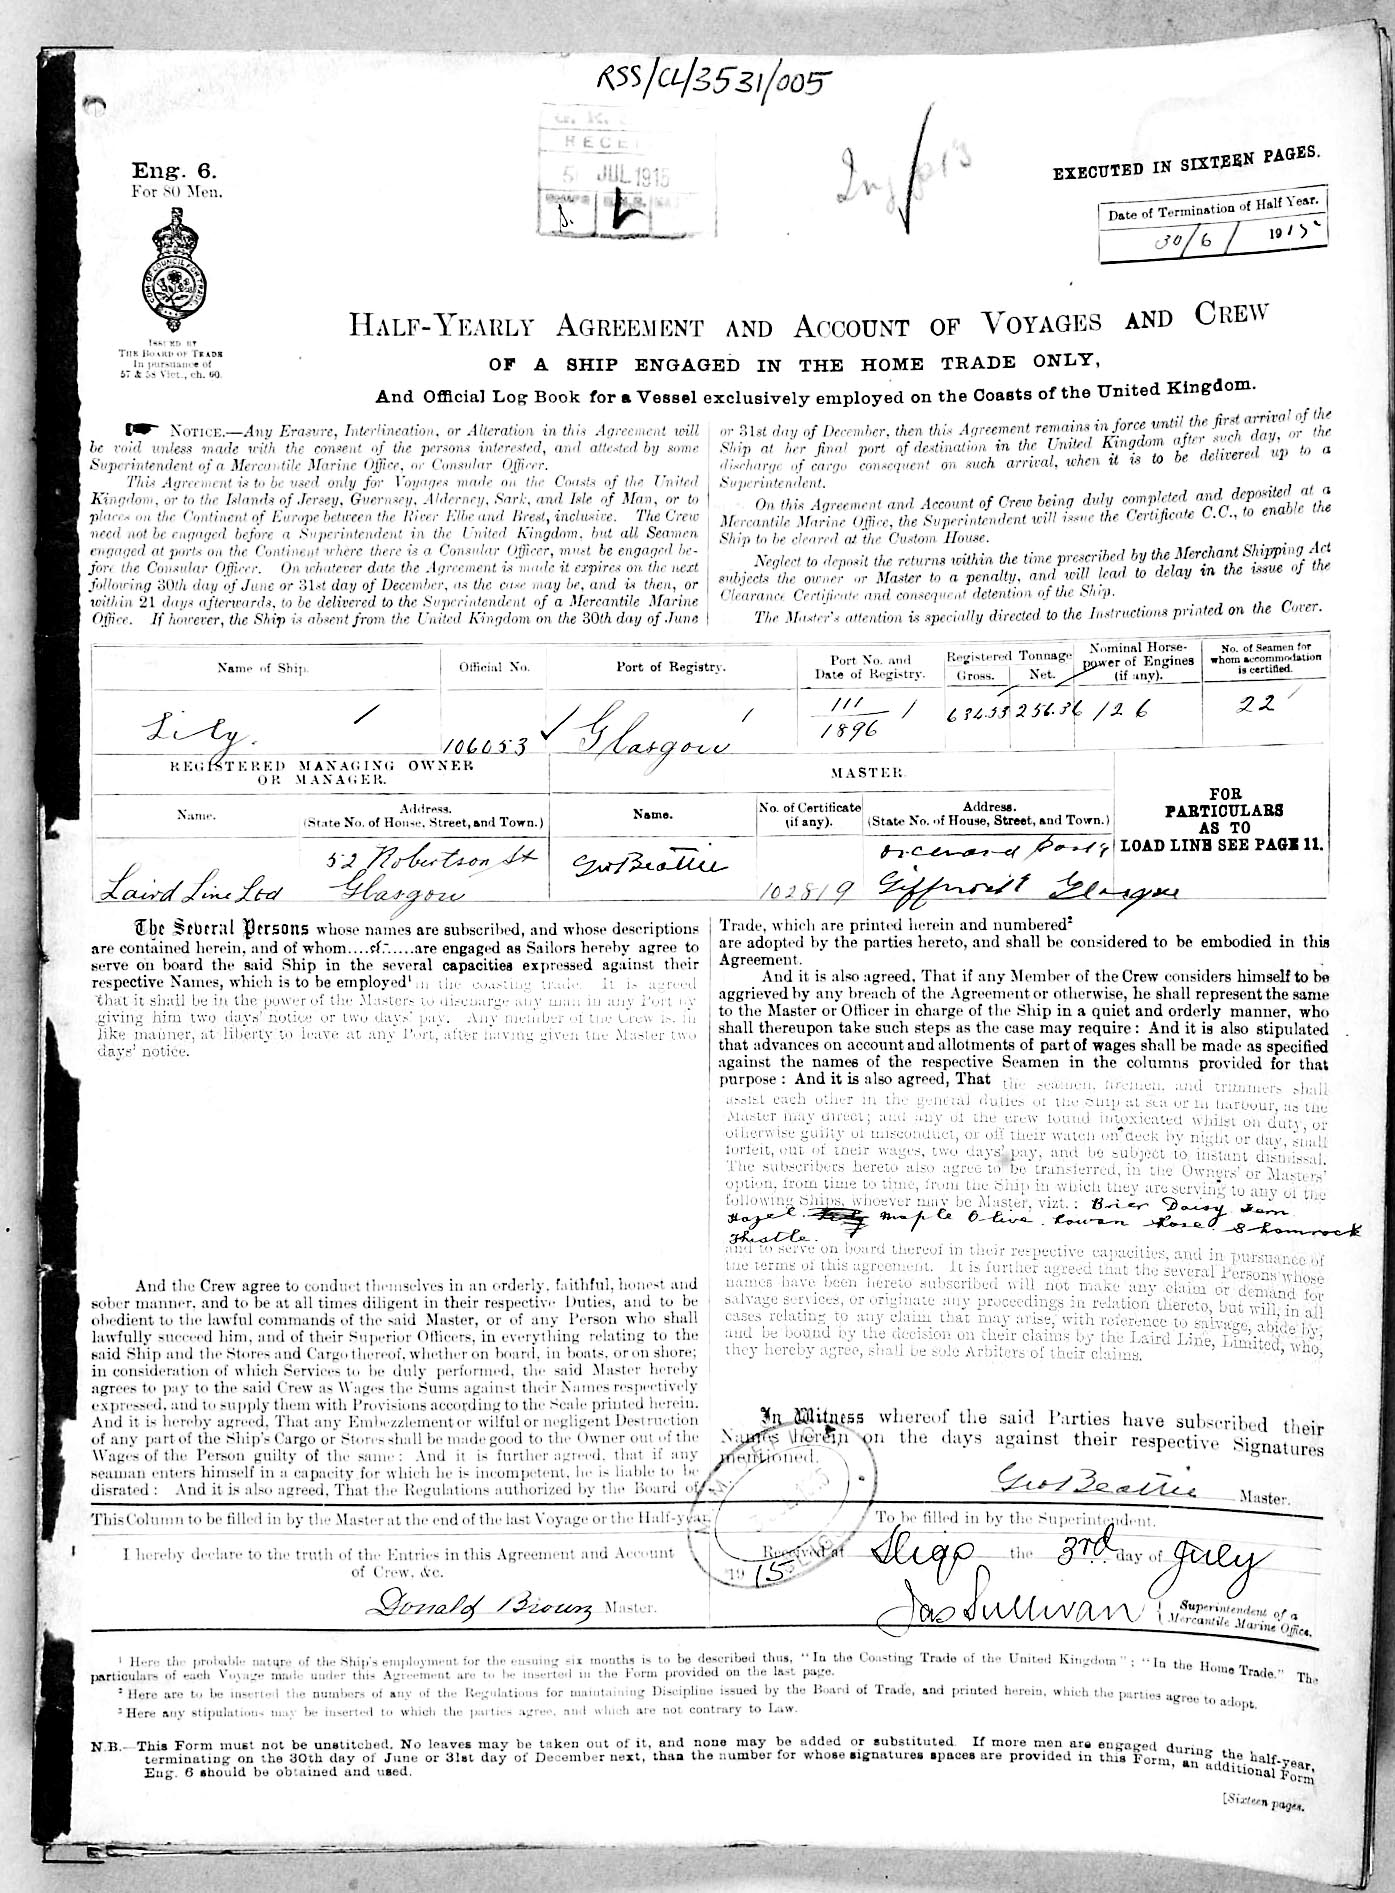 RSS/CL/3531/005
RECE
5 JUL 1915
Eng. 6.
For 80 Men.
COM. OF COUNCIL FOR TRADE
ISSUED BY
THE BOARD OF TRADE
In pursuance of
57 & 58 Vict., ch. 60.
EXECUTED IN SIXTEEN PAGES.
Date of Termination of Half Year.
30/6/ 1915
HALF-YEARLY AGREEMENT AND ACCOUNT OF VOYAGES AND CREW
OF A SHIP ENGAGED IN THE HOME TRADE ONLY,
And Official Log Book for a Vessel exclusively employed on the Coasts of the United Kingdom.
NOTICE.—Any Erasure, Interlineation, or Alteration in this Agreement will
be void unless made with the consent of the persons interested, and attested by some
Superintendent of a Mercantile Marine Office, or Consular Officer.
This Agreement is to be used only for Voyages made on the Coasts of the United
Kingdom, or to the Islands of Jersey, Guernsey, Alderney, Sark, and Isle of Man, or to
places on the Continent of Europe between the River Elbe and Brest, inclusive. The Crew
need not be engaged before a Superintendent in the United Kingdom, but all Seamen
engaged at ports on the Continent where there is a Consular Officer, must be engaged be-
fore the Consular Officer. On whatever date the Agreement is made it expires on the next
following 30th day of June or 31st day of December, as the case may be, and is then, or
within 21 days afterwards, to be delivered to the Superintendent of a Mercantile Marine
Office. If however, the Ship is absent from the United Kingdom on the 30th day of June
or 31st day of December, then this Agreement remains in force until the first arrival of the
Ship at her final port of destination in the United Kingdom after such day, or the
discharge of cargo consequent on such arrival, when it is to be delivered up to a
Superintendent.
On this Agreement and Account of Crew being duly completed and deposited at a
Mercantile Marine Office, the Superintendent will issue the Certificate C.C., to enable the
Ship to be cleared at the Custom House.
Neglect to deposit the returns within the time prescribed by the Merchant Shipping Act
subjects the owner or Master to a penalty, and will lead to delay in the issue of the
Clearance Certificate and consequent detention of the Ship.
The Master's attention is specially directed to the Instructions printed on the Cover.
Name of Ship. Official No. Port of Registry. Port No. and Date of Registry. Registered Tonnage Gross. Net. Nominal Horse-power of Engines (if any). No. of Seamen for whom accommodation is certified.
Lily. 106053 Glasgow 111/1896 634.53 256.36 126 22
REGISTERED MANAGING OWNER
OR MANAGER.
MASTER.
Name. Address. (State No. of House, Street, and Town.) Name. No. of Certificate (if any). Address. (State No. of House, Street, and Town.)
FOR
PARTICULARS
AS TO
LOAD LINE SEE PAGE 11.
Laird Line Ltd 52 Robertson St Glasgow Geo Beattie 102819 Orchard Park Giffnock Glasgow
The Several Persons whose names are subscribed, and whose descriptions
are contained herein, and of whom are engaged as Sailors hereby agree to
serve on board the said Ship in the several capacities expressed against their
respective Names, which is to be employed¹ in the coasting trade. It is agreed
that it shall be in the power of the Masters to discharge any man in any Port by
giving him two days' notice or two days' pay. Any member of the Crew is, in
like manner, at liberty to leave at any Port, after having given the Master two
days' notice.
And the Crew agree to conduct themselves in an orderly, faithful, honest and
sober manner, and to be at all times diligent in their respective Duties, and to be
obedient to the lawful commands of the said Master, or of any Person who shall
lawfully succeed him, and of their Superior Officers, in everything relating to the
said Ship and the Stores and Cargo thereof, whether on board, in boats, or on shore;
in consideration of which Services to be duly performed, the said Master hereby
agrees to pay to the said Crew as Wages the Sums against their Names respectively
expressed, and to supply them with Provisions according to the Scale printed herein.
And it is hereby agreed, That any Embezzlement or wilful or negligent Destruction
of any part of the Ship's Cargo or Stores shall be made good to the Owner out of the
Wages of the Person guilty of the same: And it is further agreed, that if any
seaman enters himself in a capacity for which he is incompetent, he is liable to be
disrated: And it is also agreed, That the Regulations authorized by the Board of
Trade, which are printed herein and numbered²
are adopted by the parties hereto, and shall be considered to be embodied in this
Agreement.
And it is also agreed, That if any Member of the Crew considers himself to be
aggrieved by any breach of the Agreement or otherwise, he shall represent the same
to the Master or Officer in charge of the Ship in a quiet and orderly manner, who
shall thereupon take such steps as the case may require: And it is also stipulated
that advances on account and allotments of part of wages shall be made as specified
against the names of the respective Seamen in the columns provided for that
purpose: And it is also agreed, That the seamen, firemen, and trimmers shall
assist each other in the general duties of the Ship at sea or in harbour, as the
Master may direct; and any of the crew found intoxicated whilst on duty, or
otherwise guilty of misconduct, or off their watch on deck by night or day, shall
forfeit, out of their wages, two days' pay, and be subject to instant dismissal.
The subscribers hereto also agree to be transferred, in the Owners' or Masters'
option, from time to time, from the Ship in which they are serving to any of the
following Ships, whoever may be Master, vizt.: Brier Daisy Fern
Hazel Lily Maple Olive Rowan Rose Shamrock
Thistle.
and to serve on board thereof in their respective capacities, and in pursuance of
the terms of this agreement. It is further agreed that the several Persons whose
names have been hereto subscribed will not make any claim or demand for
salvage services, or originate any proceedings in relation thereto, but will, in all
cases relating to any claim that may arise, with reference to salvage, abide by,
and be bound by the decision on their claims by the Laird Line, Limited, who,
they hereby agree, shall be sole Arbiters of their claims.
In Witness whereof the said Parties have subscribed their
Names herein on the days against their respective Signatures
mentioned.
Geo Beattie Master.
This Column to be filled in by the Master at the end of the last Voyage or the Half-year.
I hereby declare to the truth of the Entries in this Agreement and Account
of Crew, &c.
Donald Brown Master.
To be filled in by the Superintendent.
Received at Sligo the 3rd day of July
1915
Jas Sullivan Superintendent of a Mercantile Marine Office.
¹ Here the probable nature of the Ship's employment for the ensuing six months is to be described thus, "In the Coasting Trade of the United Kingdom"; "In the Home Trade." The
particulars of each Voyage made under this Agreement are to be inserted in the Form provided on the last page.
² Here are to be inserted the numbers of any of the Regulations for maintaining Discipline issued by the Board of Trade, and printed herein, which the parties agree to adopt.
³ Here any stipulations may be inserted to which the parties agree, and which are not contrary to Law.
N.B.—This Form must not be unstitched. No leaves may be taken out of it, and none may be added or substituted. If more men are engaged during the half-year,
terminating on the 30th day of June or 31st day of December next, than the number for whose signatures spaces are provided in this Form, an additional Form
Eng. 6 should be obtained and used.
[Sixteen pages.